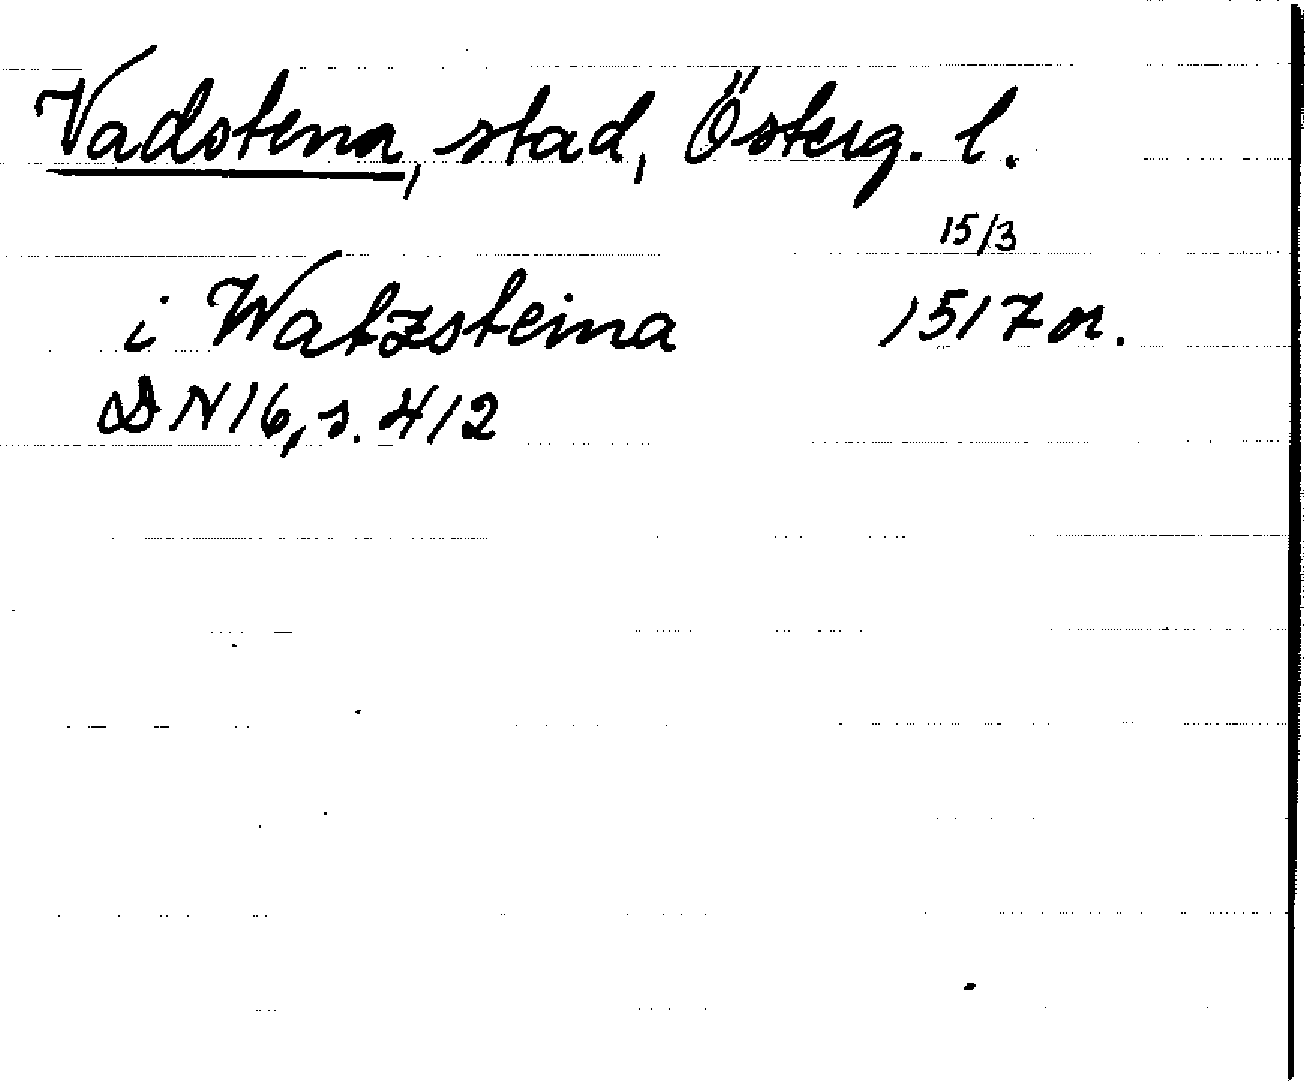 Vadstena, stad, Österg. l.
15/3
i Watzsteina 1517 or.
DN 16, s. 412